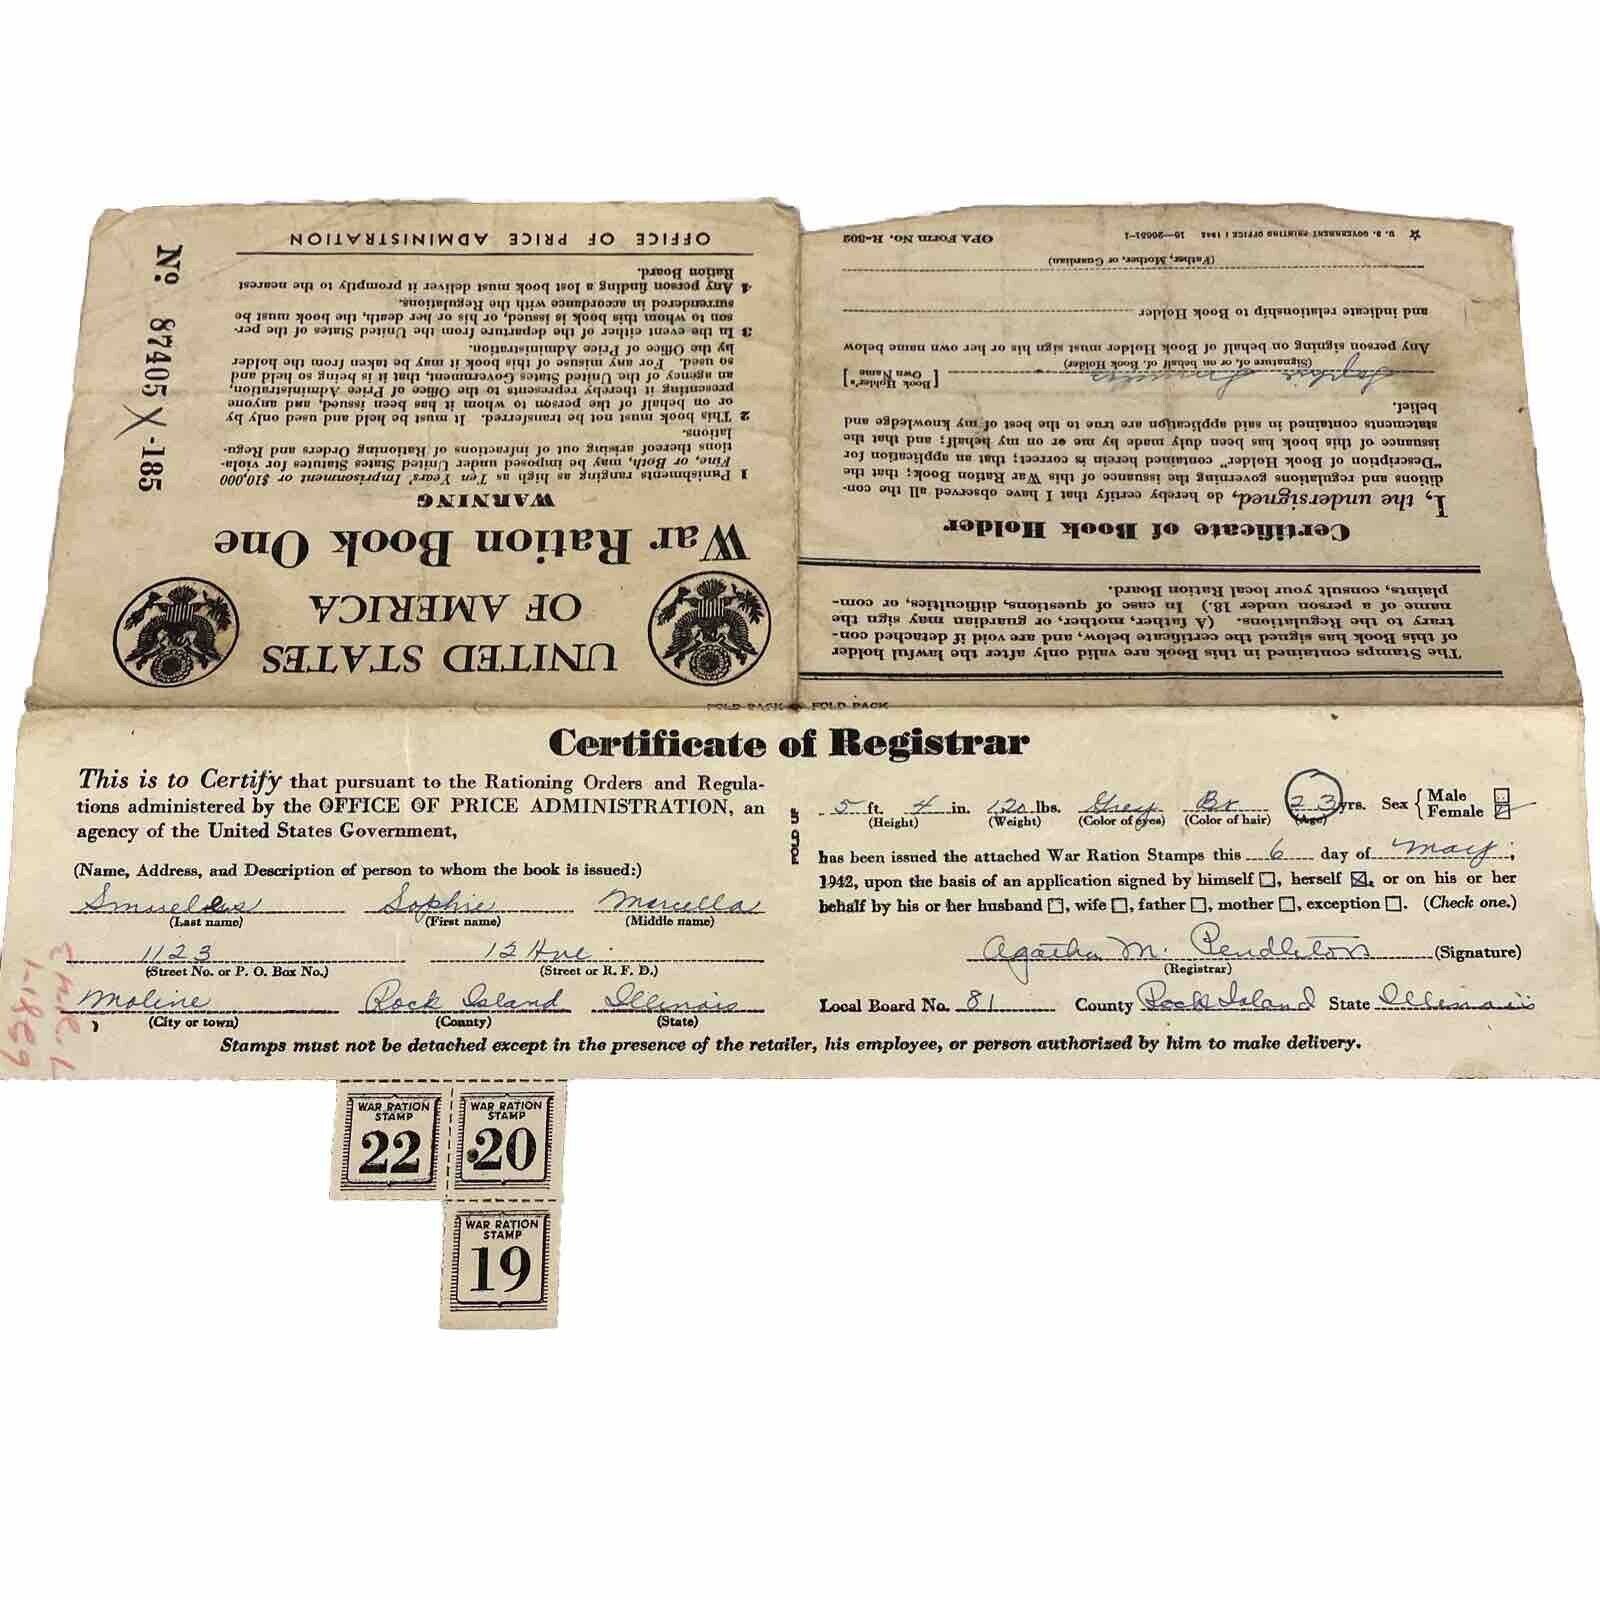 OFFICE OF PRICE ADMINISTRATION
UNITED STATES
OF AMERICA
War Ration Book One
WARNING
1 Punishments ranging as high as Ten Years' Imprisonment or $10,000
Fine, or Both, may be imposed under United States Statutes for viola-
tions thereof arising out of infractions of Rationing Orders and Regu-
lations.
2 This book must not be transferred. It must be held and used only by
or on behalf of the person to whom it has been issued, and anyone
presenting it thereby represents to the Office of Price Administration,
an agency of the United States Government, that it is being so held and
so used. For any misuse of this book it may be taken from the holder
by the Office of Price Administration.
3 In the event either of the departure from the United States of the per-
son to whom this book is issued, or his or her death, the book must be
surrendered in accordance with the Regulations.
4 Any person finding a lost book must deliver it promptly to the nearest
Ration Board.
OFFICE OF PRICE ADMINISTRATION
Nº 87405 X -185
The Stamps contained in this Book are valid only after the lawful holder
of this Book has signed the certificate below, and are void if detached con-
trary to the Regulations. (A father, mother, or guardian may sign the
name of a person under 18.) In case of questions, difficulties, or com-
plaints, consult your local Ration Board.
Certificate of Book Holder
I, the undersigned, do hereby certify that I have observed all the con-
ditions and regulations governing the issuance of this War Ration Book; that the
"Description of Book Holder" contained herein is correct; that an application for
issuance of this book has been duly made by me or on my behalf; and that the
statements contained in said application are true to the best of my knowledge and
belief.
[Book Holder's Own Name] Sophie
(Signature of, or on behalf of, Book Holder)
Any person signing on behalf of Book Holder must sign his or her own name below
and indicate relationship to Book Holder
(Father, Mother, or Guardian)
U. S. GOVERNMENT PRINTING OFFICE : 1942 16—26651-1 OPA Form No. R-302
FOLD BACK FOLD BACK
Certificate of Registrar
This is to Certify that pursuant to the Rationing Orders and Regula-
tions administered by the OFFICE OF PRICE ADMINISTRATION, an
agency of the United States Government,
(Name, Address, and Description of person to whom the book is issued:)
Sophie Marcella
(Last name) (First name) (Middle name)
1123 12 Ave.
(Street No. or P. O. Box No.) (Street or R. F. D.)
Moline Rock Island Illinois
(City or town) (County) (State)
FOLD UP
5 ft. 4 in. 120 lbs. Grey Br 23 yrs. Sex { Male Female
(Height) (Weight) (Color of eyes) (Color of hair) (Age)
has been issued the attached War Ration Stamps this 6 day of May,
1942, upon the basis of an application signed by himself ☐, herself ☒, or on his or her
behalf by his or her husband ☐, wife ☐, father ☐, mother ☐, exception ☐. (Check one.)
Agatha M. Pendleton (Signature)
(Registrar)
Local Board No. 81 County Rock Island State Illinois
Stamps must not be detached except in the presence of the retailer, his employee, or person authorized by him to make delivery.
WAR RATION
STAMP
22
WAR RATION
STAMP
20
WAR RATION
STAMP
19